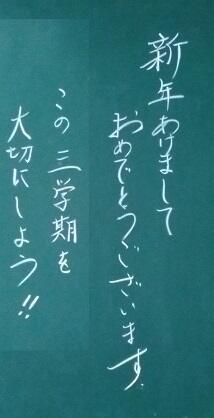 新年あけまして
おめでとうございます。
この三学期を
大切にしよう!!